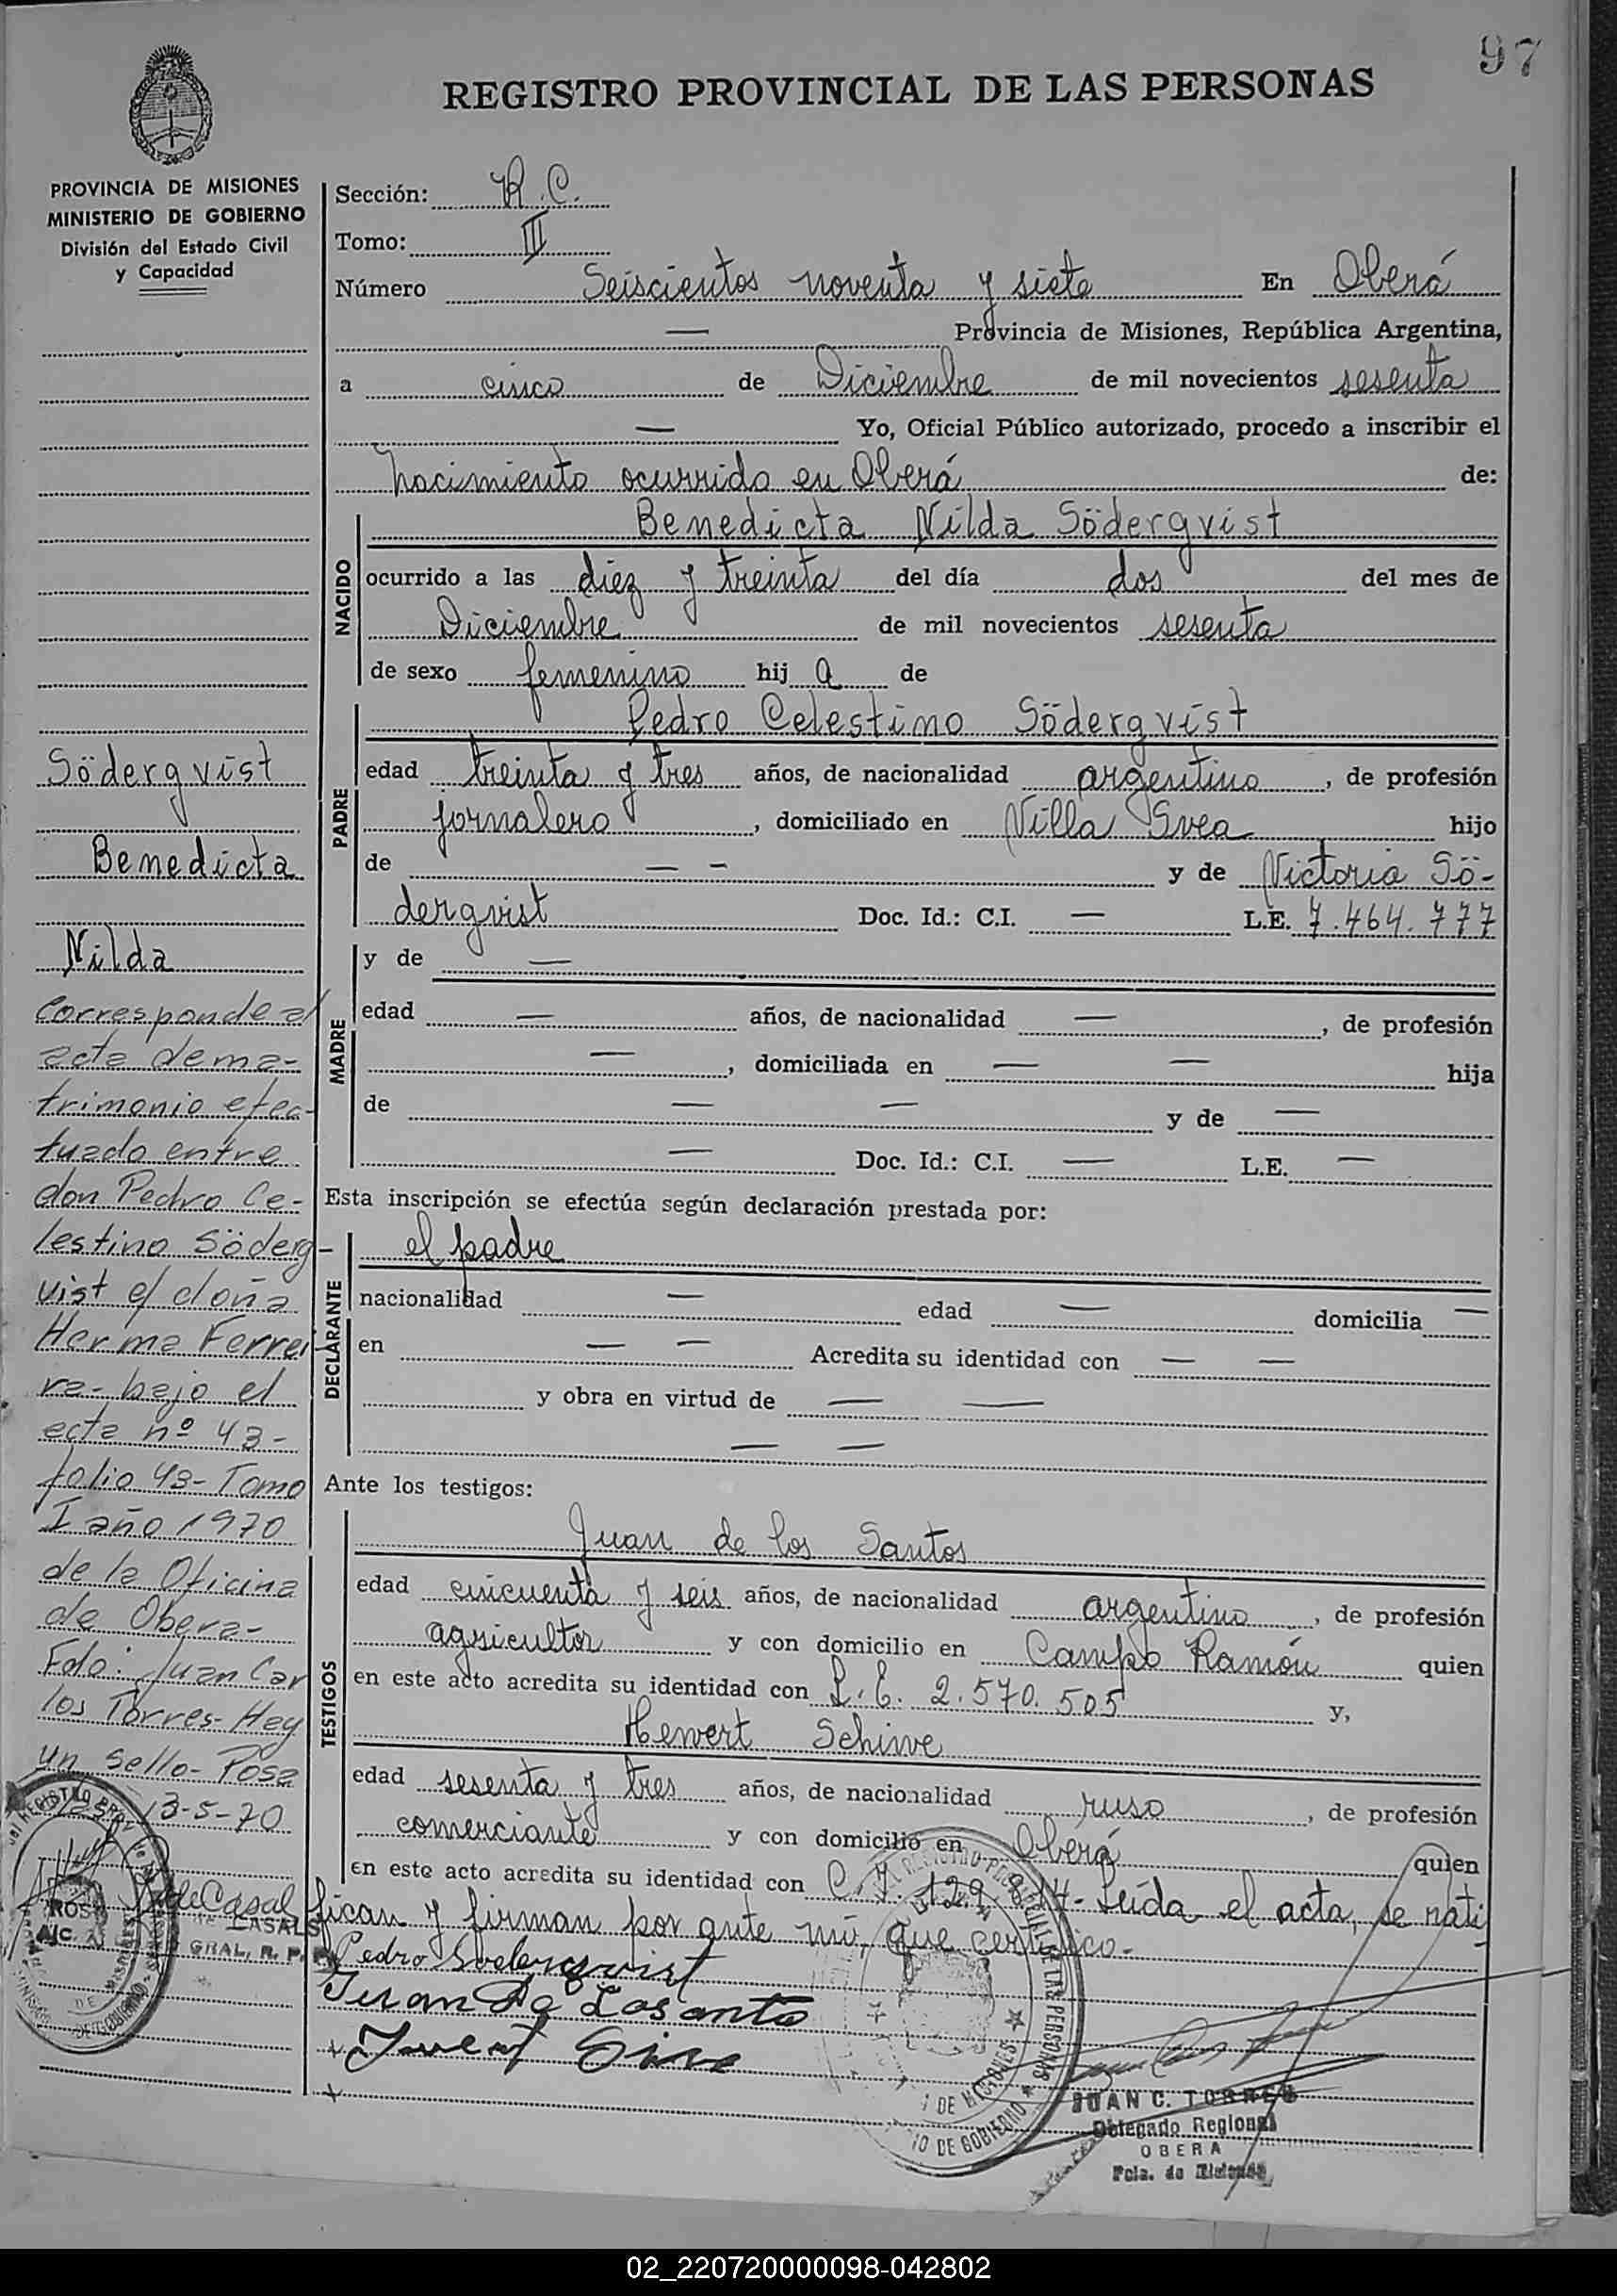 97
REGISTRO PROVINCIAL DE LAS PERSONAS
PROVINCIA DE MISIONES
MINISTERIO DE GOBIERNO
División del Estado Civil
y Capacidad
Sección: R.C.
Tomo: II
Número Seiscientos noventa y siete En Oberá
— Provincia de Misiones, República Argentina,
a cinco de Diciembre de mil novecientos sesenta
— Yo, Oficial Público autorizado, procedo a inscribir el
nacimiento ocurrido en Oberá de:
NACIDO
Benedicta Nilda Söderqvist
ocurrido a las diez y treinta del día dos del mes de
Diciembre de mil novecientos sesenta
de sexo femenino hij a de
PADRE
Pedro Celestino Söderqvist
edad treinta y tres años, de nacionalidad argentino, de profesión
jornalero, domiciliado en Villa Svea hijo
de — — y de Victoria Sö-
derqvist Doc. Id.: C.I. — L.E. 7.464.777
MADRE
y de —
edad — años, de nacionalidad —, de profesión
—, domiciliada en — — hija
de — — y de —
— Doc. Id.: C.I. — L.E. —
Esta inscripción se efectúa según declaración prestada por:
DECLARANTE
el padre
nacionalidad — edad — domicilia —
en — — Acredita su identidad con — —
y obra en virtud de — —
— —
Ante los testigos:
TESTIGOS
Juan de los Santos
edad cincuenta y seis años, de nacionalidad argentino, de profesión
agricultor y con domicilio en Campo Ramón quien
en este acto acredita su identidad con L.E. 2.570.505 y,
Hewert Schive
edad sesenta y tres años, de nacionalidad ruso, de profesión
comerciante y con domicilio en Oberá quien
en este acto acredita su identidad con C.I. 129 - Leída el acta, se rati
fican y firman por ante mí, que certifico.-
Pedro Soderqvist
Juan De Losanto
JUAN C. TORRES
Delegado Regional
OBERA
Pcia. de Misiones
Söderqvist
Benedicta
Nilda
Corresponde al
acta de ma-
trimonio efec-
tuado entre
don Pedro Ce-
lestino Söderq-
vist c/ doña
Herma Ferrei
ra- bajo el
acta nº 43-
folio 43- Tomo
I año 1970
de la Oficina
de Obera-
Fdo: Juan Car
los Torres- Hay
un sello- Posa
das 13-5-70
CASALS
GRAL. R. P. P.
02_220720000098-042802